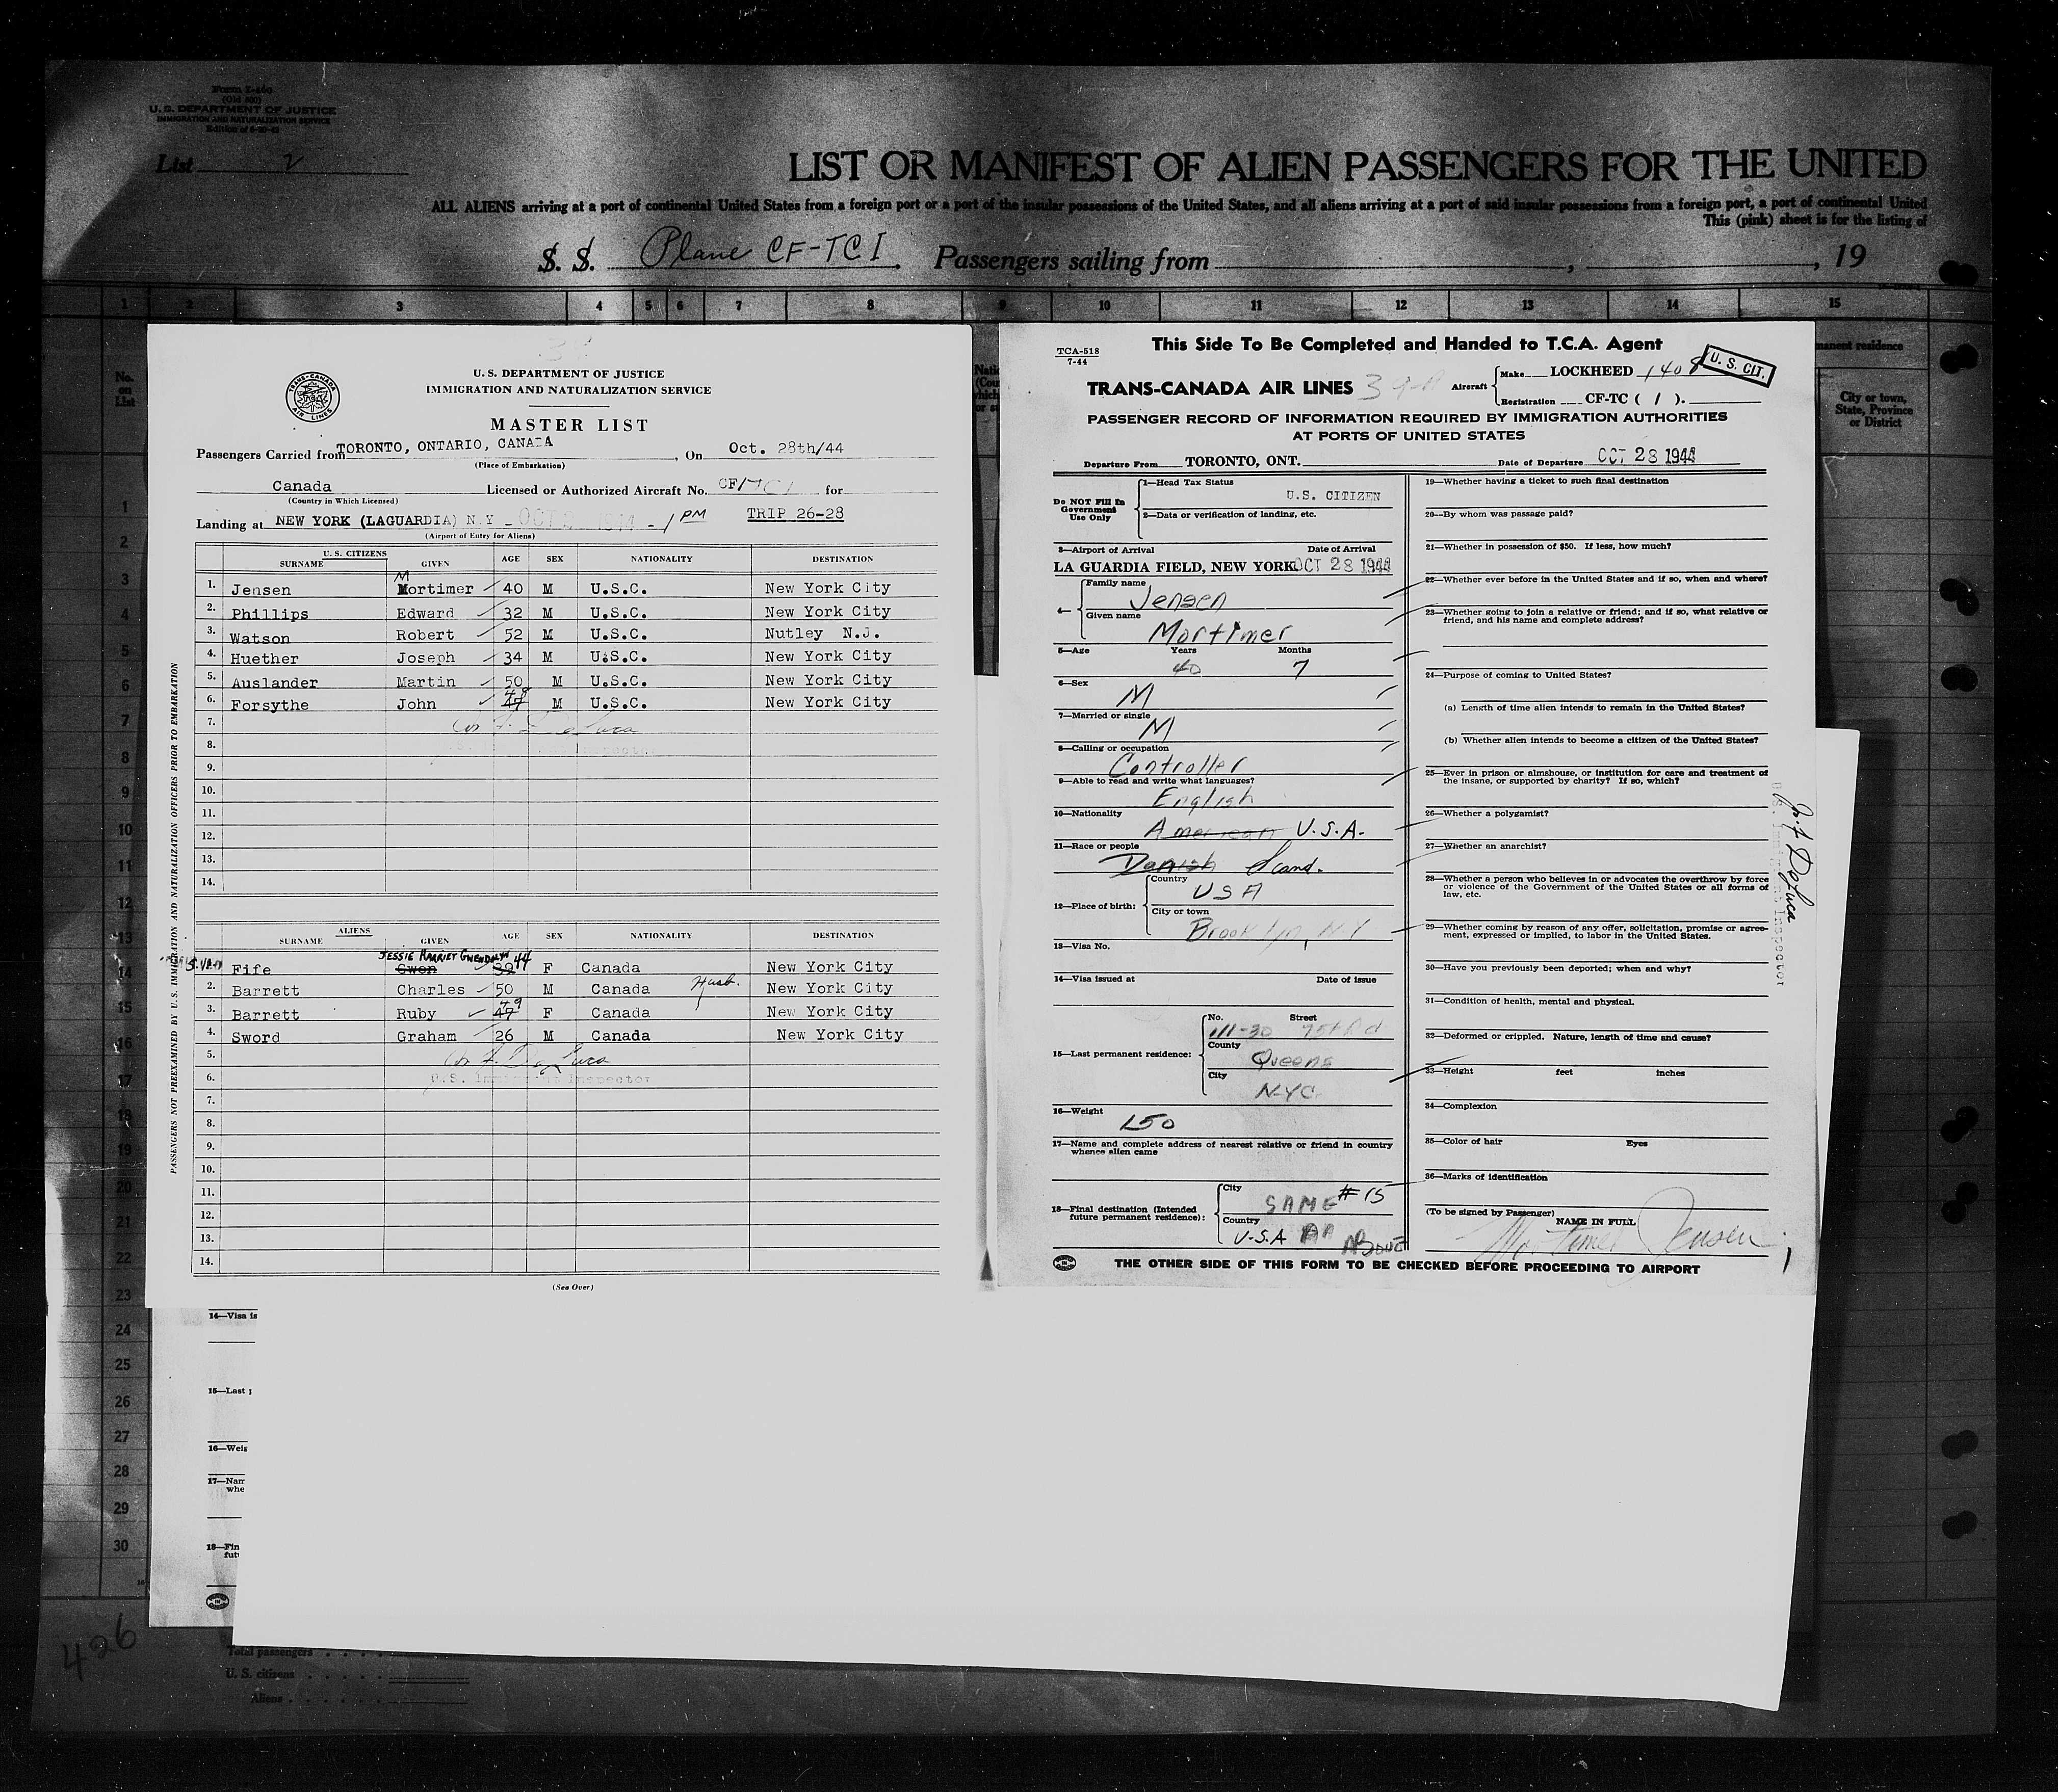 Form I-460
(Old 500)
U. S. DEPARTMENT OF JUSTICE
IMMIGRATION AND NATURALIZATION SERVICE
List 2
LIST OR MANIFEST OF ALIEN PASSENGERS FOR THE UNITED
ALL ALIENS arriving at a port of continental United States from a foreign port or a port of the insular possessions of the United States, and all aliens arriving at a port of said insular possessions from a foreign port, a port of continental United
This (pink) sheet is for the listing of
S. S. Plane CF-TCI. Passengers sailing from , , 19
1 2 3 4 5 6 7 8 9 10 11 12 13 14 15
No. on List
manent residence
City or town, State, Province or District
TRANS-CANADA AIR LINES
U. S. DEPARTMENT OF JUSTICE
IMMIGRATION AND NATURALIZATION SERVICE
MASTER LIST
Passengers Carried from TORONTO, ONTARIO, CANADA, On Oct. 28th/44
(Place of Embarkation)
Canada Licensed or Authorized Aircraft No. CF/TCI for
(Country in Which Licensed)
Landing at NEW YORK (LAGUARDIA) N.Y - OCT 2 1944 - 1 PM TRIP 26-28
(Airport of Entry for Aliens)
U. S. CITIZENS
SURNAME GIVEN AGE SEX NATIONALITY DESTINATION
M
1. Jensen Mortimer 40 M U.S.C. New York City
2. Phillips Edward 32 M U.S.C. New York City
3. Watson Robert 52 M U.S.C. Nutley N.J.
4. Huether Joseph 34 M U.S.C. New York City
5. Auslander Martin 50 M U.S.C. New York City
6. Forsythe John 47 48 M U.S.C. New York City
7.
8.
9.
10.
11.
12.
13.
14.
ALIENS
SURNAME GIVEN AGE SEX NATIONALITY DESTINATION
JESSIE HARRIET GWENDOLYN
Fife Gwen 39 44 F Canada New York City
2. Barrett Charles 50 M Canada Husb. New York City
3. Barrett Ruby 47 49 F Canada New York City
4. Sword Graham 26 M Canada New York City
5.
6. U.S. Immigrant Inspector
7.
8.
9.
10.
11.
12.
13.
14.
(See Over)
PASSENGERS NOT PREEXAMINED BY U.S. IMMIGRATION AND NATURALIZATION OFFICERS PRIOR TO EMBARKATION
TCA-518
7-44
This Side To Be Completed and Handed to T.C.A. Agent
U. S. CIT.
TRANS-CANADA AIR LINES
Aircraft
Make LOCKHEED 1408
Registration CF-TC ( I ).
PASSENGER RECORD OF INFORMATION REQUIRED BY IMMIGRATION AUTHORITIES
AT PORTS OF UNITED STATES
Departure From TORONTO, ONT. Date of Departure OCT 28 1944
Do NOT Fill In Government Use Only
1—Head Tax Status
U.S. CITIZEN
2—Data or verification of landing, etc.
3—Airport of Arrival Date of Arrival
LA GUARDIA FIELD, NEW YORK OCT 28 1944
4—
Family name
Jensen
Given name
Mortimer
5—Age Years Months
40 7
6—Sex
M
7—Married or single
M
8—Calling or occupation
Controller
9—Able to read and write what languages?
English
10—Nationality
American U.S.A.
11—Race or people
Danish Scand.
12—Place of birth:
Country
USA
City or town
Brooklyn, N.Y
13—Visa No.
14—Visa issued at Date of issue
15—Last permanent residence:
No. Street
111-30 75th Rd
County
Queens
City
NYC
16—Weight
150
17—Name and complete address of nearest relative or friend in country
whence alien came
18—Final destination (Intended
future permanent residence):
City
SAME # 15
Country
U.S.A ABOVE
19—Whether having a ticket to such final destination
20—By whom was passage paid?
21—Whether in possession of $50. If less, how much?
22—Whether ever before in the United States and if so, when and where?
23—Whether going to join a relative or friend; and if so, what relative or
friend, and his name and complete address?
24—Purpose of coming to United States?
(a) Length of time alien intends to remain in the United States?
(b) Whether alien intends to become a citizen of the United States?
25—Ever in prison or almshouse, or institution for care and treatment of
the insane, or supported by charity? If so, which?
26—Whether a polygamist?
27—Whether an anarchist?
28—Whether a person who believes in or advocates the overthrow by force
or violence of the Government of the United States or all forms of
law, etc.
29—Whether coming by reason of any offer, solicitation, promise or agree-
ment, expressed or implied, to labor in the United States.
30—Have you previously been deported; when and why?
31—Condition of health, mental and physical.
32—Deformed or crippled. Nature, length of time and cause?
33—Height feet inches
34—Complexion
35—Color of hair Eyes
36—Marks of identification
(To be signed by Passenger)
NAME IN FULL
Mortimer Jensen
THE OTHER SIDE OF THIS FORM TO BE CHECKED BEFORE PROCEEDING TO AIRPORT
1
2
3
4
5
6
7
8
9
10
11
12
13
14
15
16
17
18
19
20
21
22
23
24
25
26
27
28
29
30
14—Visa is
15—Last
16—Weig
17—Nam
whe
18—Fin
futu
426
Total passengers
U. S. citizens
Aliens